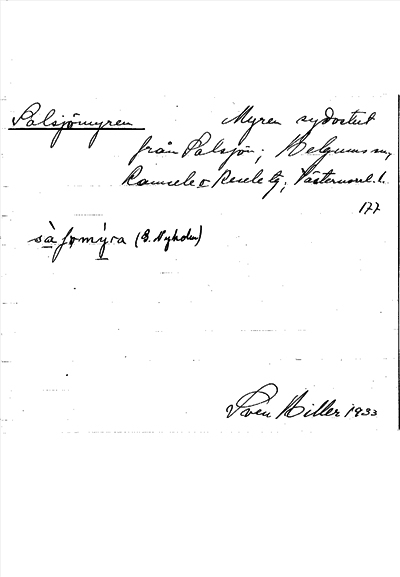 Salsjömyren Myren sydostut
från Salsjön; Helgums sn,
Ramsele o Resele tg, Västernorrl. l.
177
sàʃomýra (E. Nyholm)
Sven Hiller 1933